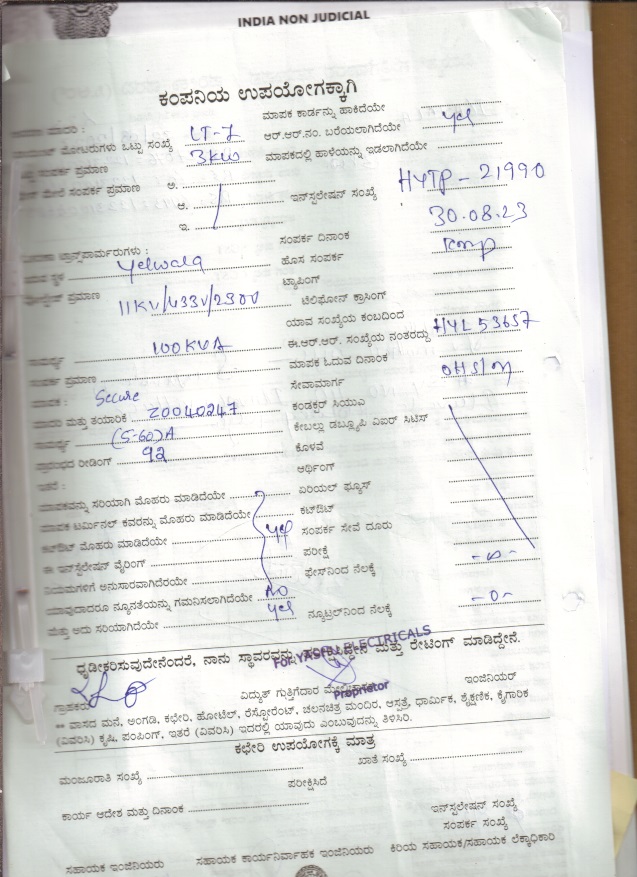 INDIA NON JUDICIAL
ಕಂಪನಿಯ ಉಪಯೋಗಕ್ಕಾಗಿ
ಮಾದರಿ :
ಮಾಪಕ ಕಾರ್ಡನ್ನು ಹಾಕಿದೆಯೇ
ಮೋಟರುಗಳು ಒಟ್ಟು ಸಂಖ್ಯೆ LT-7
ಆರ್.ಆರ್.ನಂ. ಬರೆಯಲಾಗಿದೆಯೇ yes
ಸಂಪರ್ಕ ಪ್ರಮಾಣ 3kw
ಮಾಪಕದಲ್ಲಿ ಹಾಳೆಯನ್ನು ಇಡಲಾಗಿದೆಯೇ
ಮೇಲೆ ಸಂಪರ್ಕ ಪ್ರಮಾಣ ಅ.
ಆ.
ಇನ್ಸ್ಟಲೇಷನ್ ಸಂಖ್ಯೆ HYTP - 21990
ಇ.
ಸಂಪರ್ಕ ದಿನಾಂಕ 30.08.23
ಟ್ರಾನ್ಸ್‌ಫಾರ್ಮರುಗಳು :
ಹೊಸ ಸಂಪರ್ಕ
ಸ್ಥಳ Yelwala
ಟ್ಯಾಪಿಂಗ್
ಪ್ರಮಾಣ 11KV/433V/2300
ಟೆಲಿಫೋನ್ ಕ್ರಾಸಿಂಗ್
ಯಾವ ಸಂಖ್ಯೆಯ ಕಂಬದಿಂದ
ಸಾಮರ್ಥ್ಯ 100KVA
ಈ.ಆರ್.ಆರ್. ಸಂಖ್ಯೆಯ ನಂತರದ್ದು HYL53657
ಸಂಪರ್ಕ ಪ್ರಮಾಣ
ಮಾಪಕ ಓದುವ ದಿನಾಂಕ
ಮಾಪಕ : Secure
ಸೇವಾಮಾರ್ಗ
ಮಾದರಿ ಮತ್ತು ತಯಾರಿಕೆ 20040247
ಕಂಡಕ್ಟರ್ ಸಿಯುಎ
ಸಾಮರ್ಥ್ಯ (5-60)A
ಕೇಬಲ್ಲು ಡಬ್ಲ್ಯೂಪಿ ಎಐಆರ್ ಸಿಟಿಸ್
ಪ್ರಾರಂಭದ ರೀಡಿಂಗ್ 92
ಕೊಳವೆ
ಇತರೆ :
ಆರ್ಥಿಂಗ್
ಮಾಪಕವನ್ನು ಸರಿಯಾಗಿ ಮೊಹರು ಮಾಡಿದೆಯೇ
ಏರಿಯಲ್ ಫ್ಯೂಸ್
ಮಾಪಕ ಟರ್ಮಿನಲ್ ಕವರನ್ನು ಮೊಹರು ಮಾಡಿದೆಯೇ
ಕಟ್‌ಔಟ್
ಕಟ್‌ಔಟ್ ಮೊಹರು ಮಾಡಿದೆಯೇ yes
ಸಂಪರ್ಕ ಸೇವೆ ದೂರು
ಈ ಇನ್ಸ್ಟಲೇಷನ್ ವೈರಿಂಗ್
ಪರೀಕ್ಷೆ
ನಿಯಮಗಳಿಗೆ ಅನುಸಾರವಾಗಿದೆಯೇ
ಫೇಸ್‌ನಿಂದ ನೆಲಕ್ಕೆ
ಯಾವುದಾದರೂ ನ್ಯೂನತೆಯನ್ನು ಗಮನಿಸಲಾಗಿದೆಯೇ NO
ಮತ್ತು ಅದು ಸರಿಯಾಗಿದೆಯೇ yes
ನ್ಯೂಟ್ರಲ್‌ನಿಂದ ನೆಲಕ್ಕೆ -0-
ಧೃಡೀಕರಿಸುವುದೇನೆಂದರೆ, ನಾನು ಸ್ಥಾವರವನ್ನು ಮತ್ತು ರೇಟಿಂಗ್ ಮಾಡಿದ್ದೇನೆ.
ELECTRICALS
ವಿದ್ಯುತ್ ಗುತ್ತಿಗೆದಾರ
ಇಂಜಿನಿಯರ್
Proprietor
ಗ್ರಾಹಕರು
** ವಾಸದ ಮನೆ, ಅಂಗಡಿ, ಕಛೇರಿ, ಹೋಟೆಲ್, ರೆಸ್ಟೋರೆಂಟ್, ಚಲನಚಿತ್ರ ಮಂದಿರ, ಆಸ್ಪತ್ರೆ, ಧಾರ್ಮಿಕ, ಶೈಕ್ಷಣಿಕ, ಕೈಗಾರಿಕ
(ವಿವರಿಸಿ) ಕೃಷಿ, ಪಂಪಿಂಗ್, ಇತರೆ (ವಿವರಿಸಿ) ಇದರಲ್ಲಿ ಯಾವುದು ಎಂಬುವುದನ್ನು ತಿಳಿಸಿರಿ.
ಕಛೇರಿ ಉಪಯೋಗಕ್ಕೆ ಮಾತ್ರ
ಮಂಜೂರಾತಿ ಸಂಖ್ಯೆ
ಖಾತೆ ಸಂಖ್ಯೆ
ಪರೀಕ್ಷಿಸಿದೆ
ಕಾರ್ಯ ಆದೇಶ ಮತ್ತು ದಿನಾಂಕ
ಇನ್ಸ್ಟಲೇಷನ್ ಸಂಖ್ಯೆ
ಸಂಪರ್ಕ ಸಂಖ್ಯೆ
ಸಹಾಯಕ ಇಂಜಿನಿಯರು ಸಹಾಯಕ ಕಾರ್ಯನಿರ್ವಾಹಕ ಇಂಜಿನಿಯರು ಕಿರಿಯ ಸಹಾಯಕ/ಸಹಾಯಕ ಲೆಕ್ಕಾಧಿಕಾರಿ